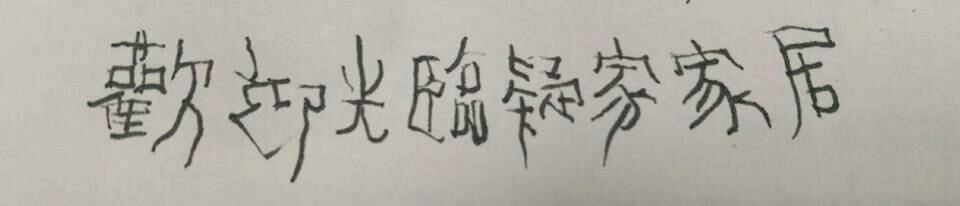 歡迎光臨疑家家居